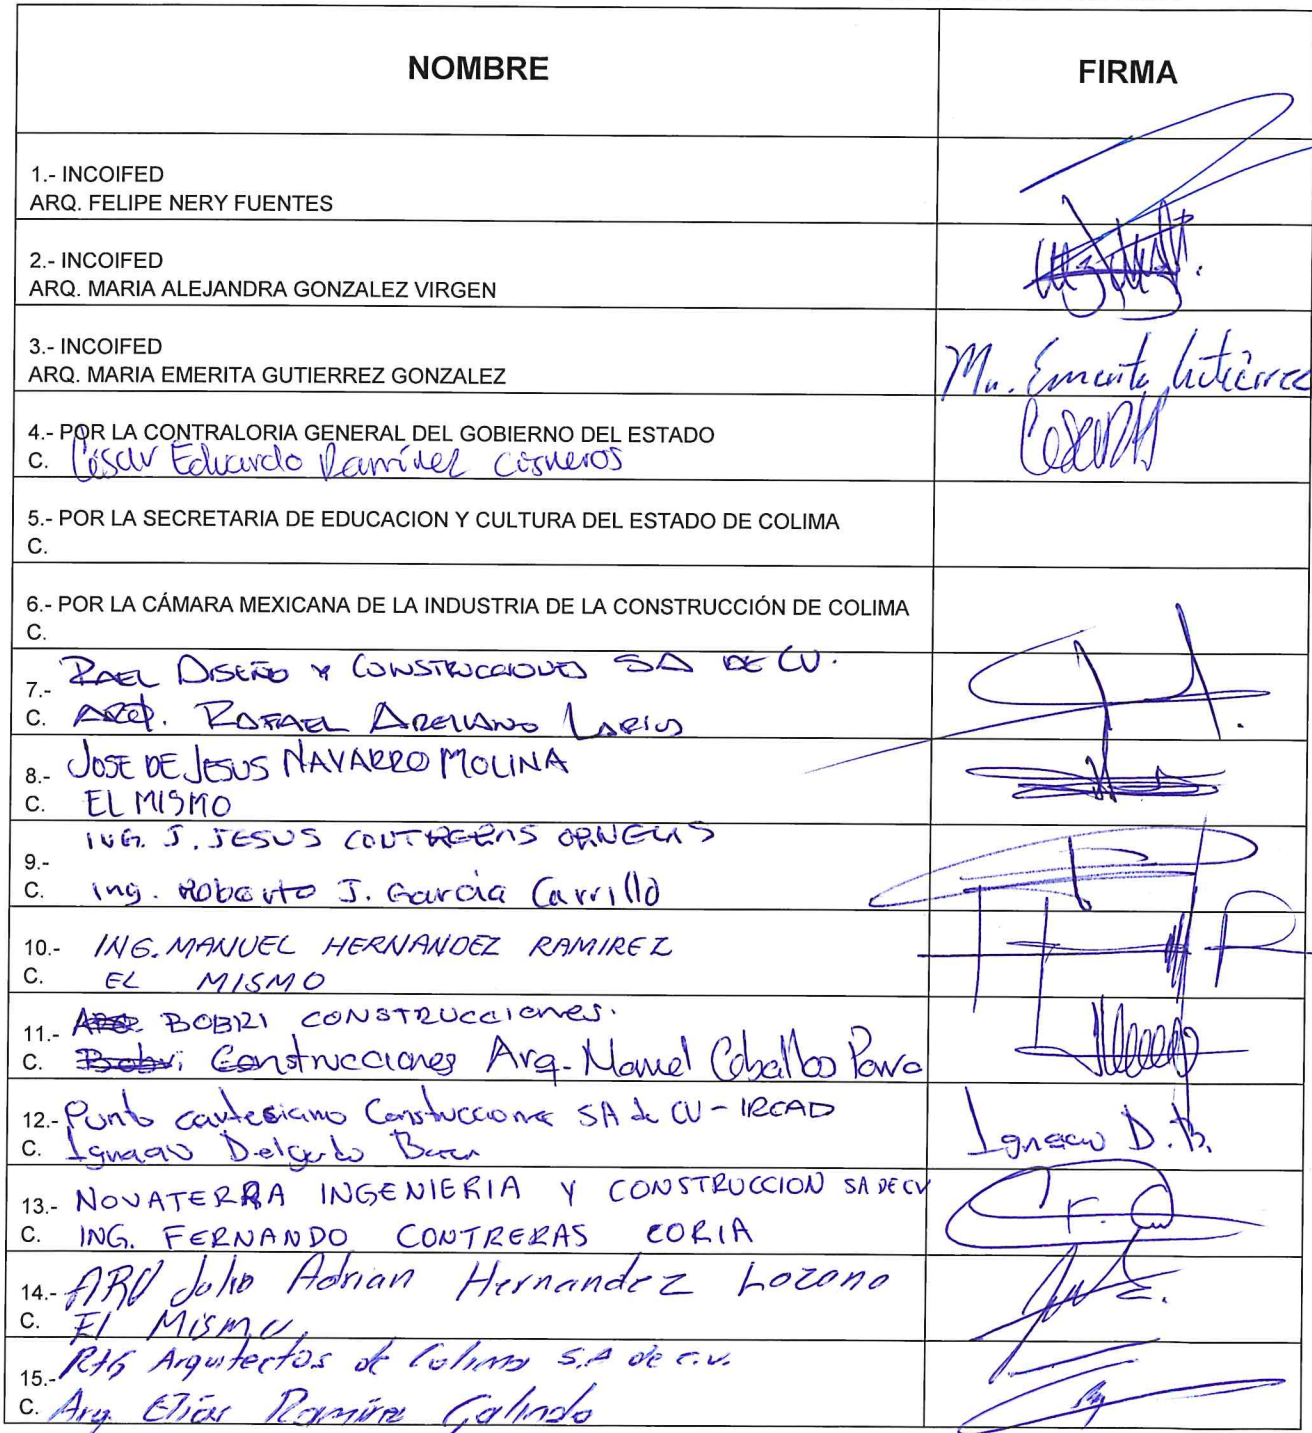 NOMBRE FIRMA
1.- INCOIFED
ARQ. FELIPE NERY FUENTES
2.- INCOIFED
ARQ. MARIA ALEJANDRA GONZALEZ VIRGEN
3.- INCOIFED
ARQ. MARIA EMERITA GUTIERREZ GONZALEZ
Ma. Emerita Gutiérrez
4.- POR LA CONTRALORIA GENERAL DEL GOBIERNO DEL ESTADO
C. César Eduardo Ramírez Cisneros
5.- POR LA SECRETARIA DE EDUCACION Y CULTURA DEL ESTADO DE COLIMA
C.
6.- POR LA CÁMARA MEXICANA DE LA INDUSTRIA DE LA CONSTRUCCIÓN DE COLIMA
C.
7.- RAEL DISEÑO Y CONSTRUCCIONES SA DE CV.
C. ARQ. RAFAEL ARELLANO LARIOS
8.- JOSE DE JESUS NAVARRO MOLINA
C. EL MISMO
9.- ING. J. JESUS CONTRERAS ORNELAS
C. ing. Roberto J. García Carrillo
10.- ING. MANUEL HERNANDEZ RAMIREZ
C. EL MISMO
11.- ARQ. BOBRI CONSTRUCCIONES.
C. Bobri Construcciones Arq. Manuel Ceballos Parra
12.- Punto cartesiano Construcciones SA de CV - IRCAD
C. Ignacio Delgado
Ignacio D. B.
13.- NOVATERRA INGENIERIA Y CONSTRUCCION SA DE CV
C. ING. FERNANDO CONTRERAS CORIA
14.- ARQ Julio Adrian Hernandez Lozano
C. El Mismo
15.- Arquitectos de Colima S.A de c.v.
C. Arq. Elías Ramírez Galindo